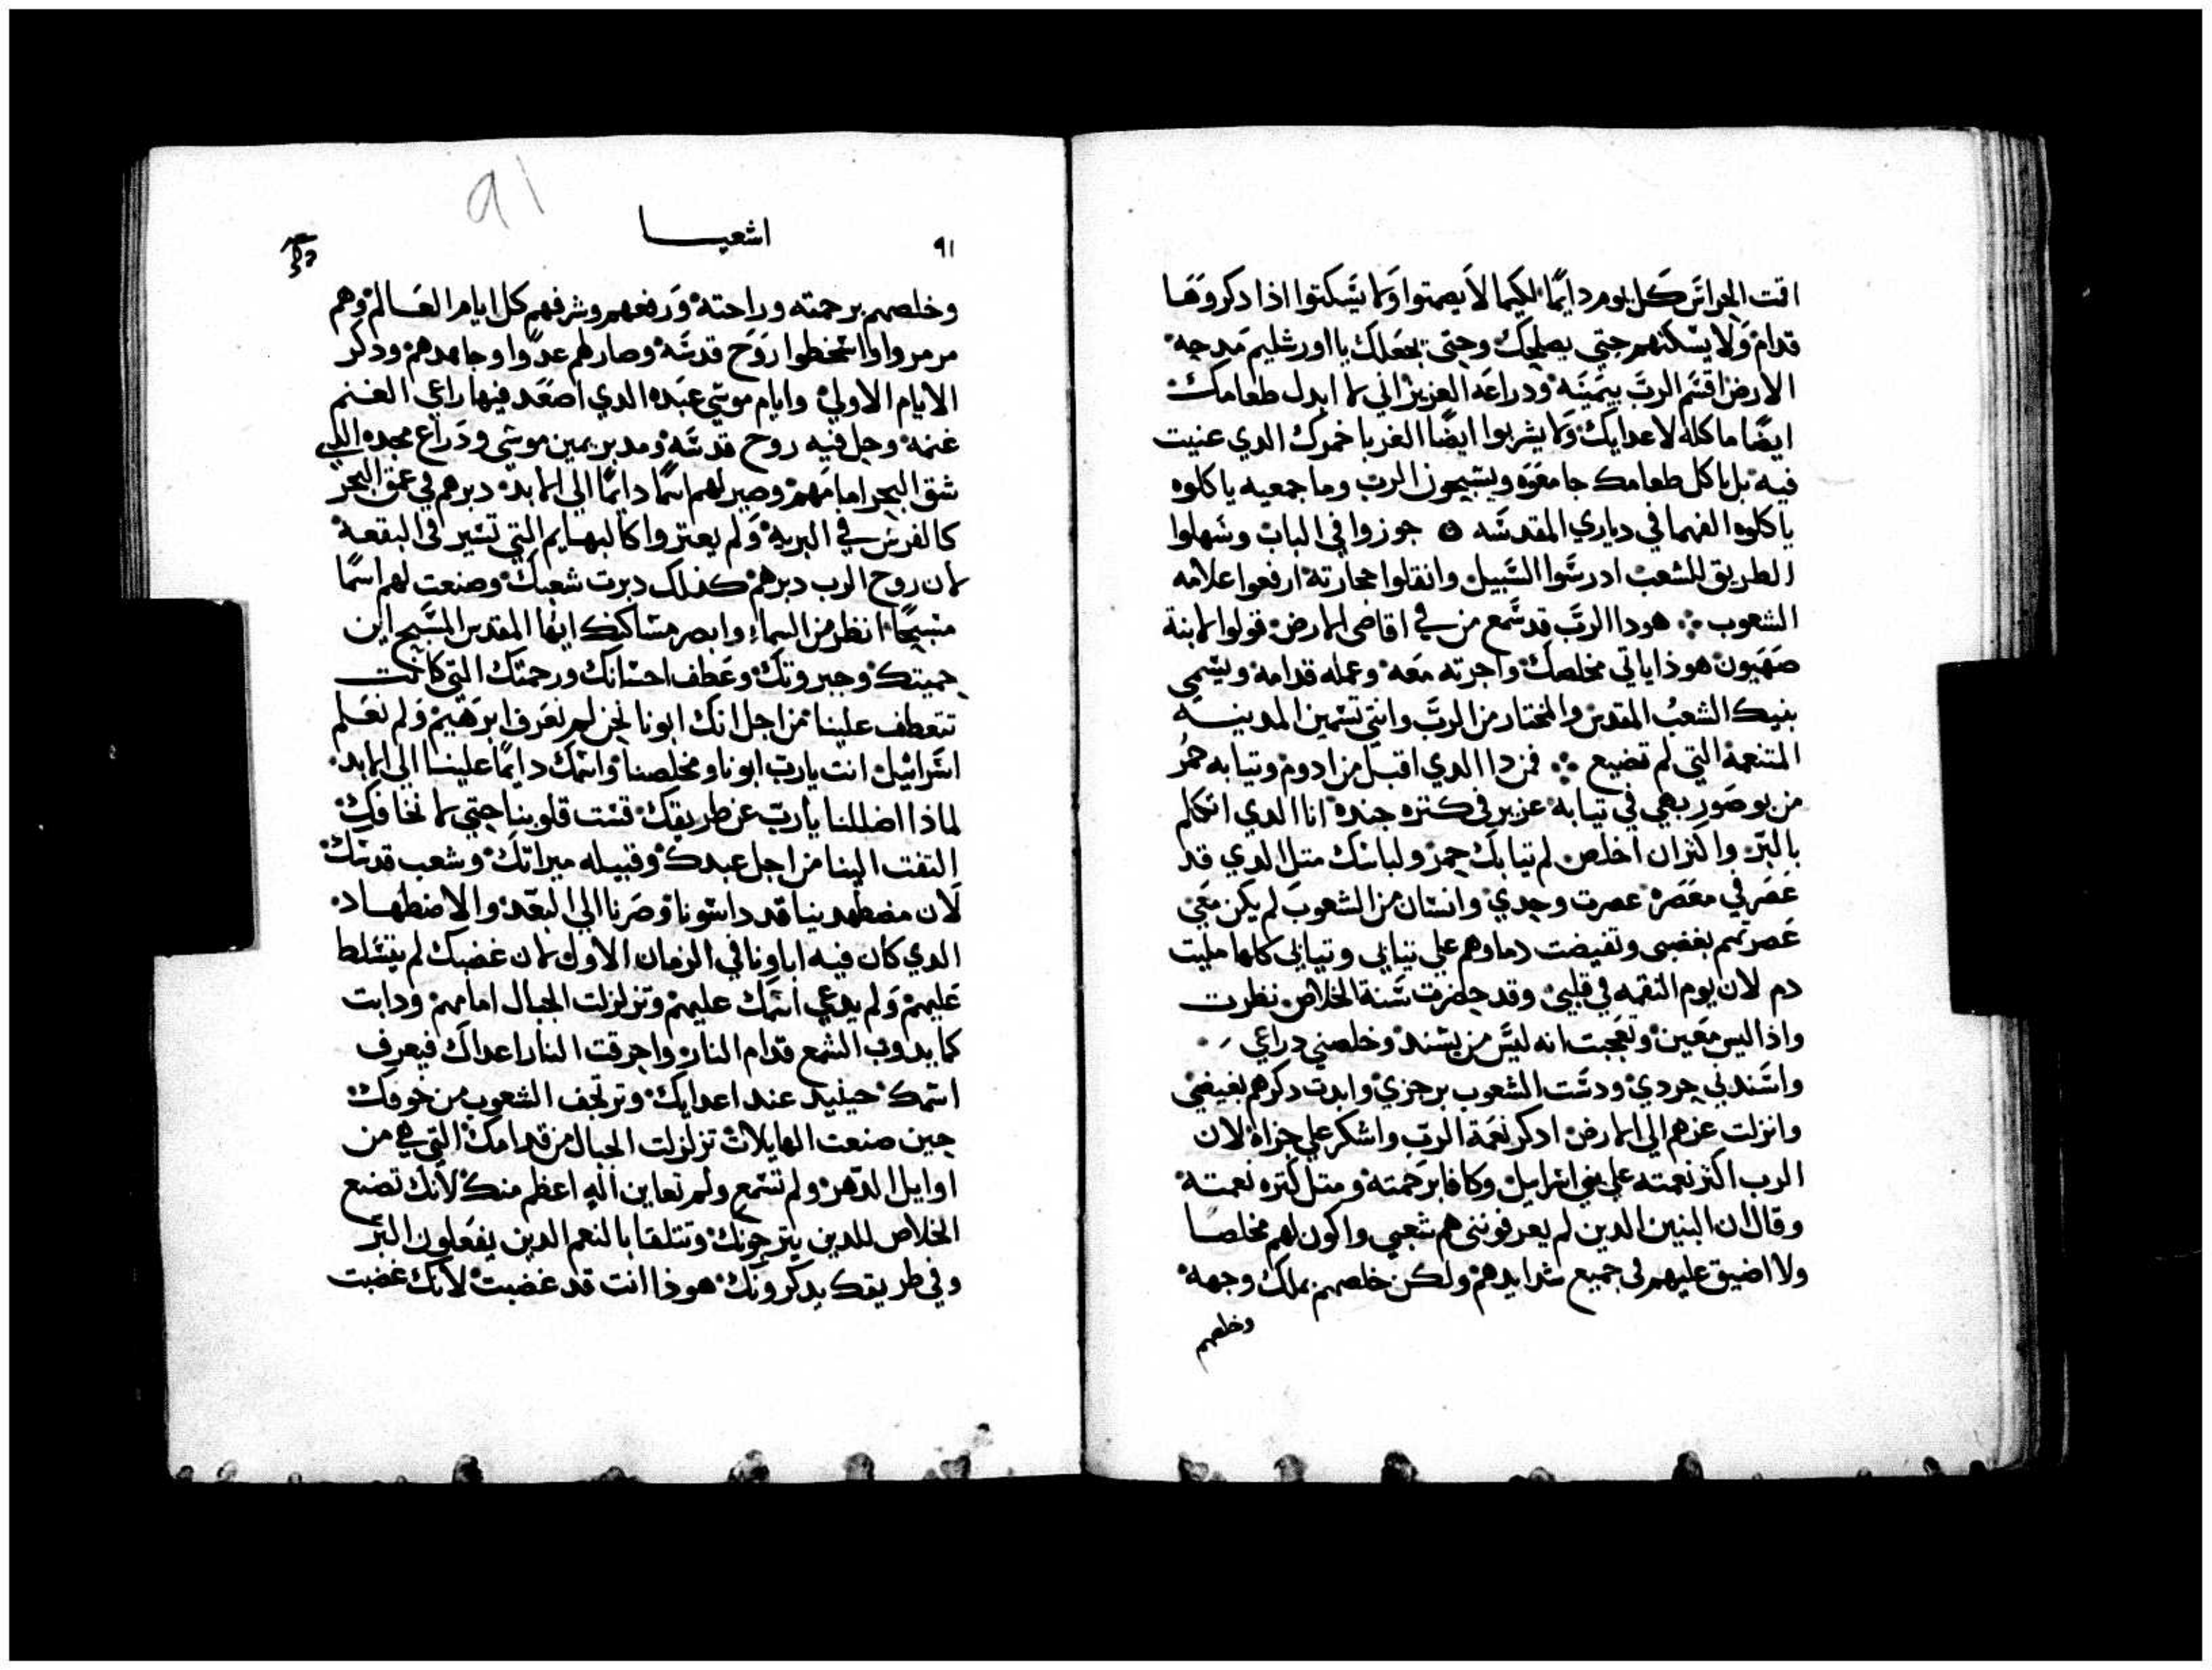 اقت الحراس كل يوم دايمًا لكيما لا يصمتوا ولا يسكتوا اذا دكروها
قدام ولا يسكتهم حتي يصلحك وحتي يجعلك يا اورشليم مدحه
الارض اقسم الرب بيمينه ودراعه العزيز اني لا ابدل طعامك
ايضًا ماكله لاعدايك ولا يشربوا ايضًا الغربا خمرك الدي عنيت
فيه بل ياكل طعامك جامعوه ويسبحون الرب وما جمعيه ياكلوه
ياكلوه الفهما في دياري المقدسه جوزوا في الباب وسهلوا
الطريق للشعب ادرسوا السبيل وانقلوا حجارته ارفعوا علامه
الشعوب هودا الرب قد سمع من في اقاصي الارض قولوا لابنة
صهيون هوذا ياتي مخلصك واجرته معه وعمله قدامه ويسمي
بنيك الشعب المقدس والمختار من الرب وانتي تسمين المدينه
المتنعمة التي لم تضيع فمن دا الدي اقبل من ادوم وتيابه حمر
من بوصور بهي في تيابه عزيز في كتره جنده انا الدي اتكلم
بالبر واكتر ان اخلص لم تيابك حمر ولباسك متل الدي قد
عصر في معصره عصرت وحدي وانسان من الشعوب لم يكن معي
عصرتهم بغضبي وتفيضت دماوهم علي تيابي وتيابي كلها مليت
دم لان يوم النقمه في قلبي وقد حضرت سنة الخلاص نظرت
واذا ليس معين وتعجبت انه ليس من يسند وخلصني دراعي
واسندني حردي ودست الشعوب برجزي وابدت دكرهم بغيضي
وانزلت عزهم الي الارض ادكر نعمة الرب واشكر علي جزاه لان
الرب اكتر نعمته علي بني اسراييل وكافا برحمته ومتل كتره نعمته
وقال ان البنين الدين لم يعرفونني هم شعبي واكون لهم مخلصا
ولا اضيق عليهم في جميع شدايدهم ولكن خلصهم بملك وجهه
وخلصهم
٩١
اشعيـــا
91
وخلصهم برحمته وراحته ورفعهم وشرفهم كل ايام العالم وهم
مرمروا واسخطوا روح قدسه وصار لهم عدوا وجاهدهم ودكر
الايام الاولي وايام موسي عبده الدي اصعد فيها راعي الغنم
غنمه وحل فيه روح قدسه ومدبر يمين موسي ودراع مجده الدي
شق البحر امامهم وصير لهم اسمًا دايمًا الي الابد دبرهم في عمق البحر
كالفرس في البريه ولم يعتروا كالبهايم التي تسير في البقعة
لان روح الرب دبرهم كدلك دبرت شعبك وصنعت لهم اسمًا
مسبحًا انظر من السماء وابصر مساكنك ايها المقدس المسبح اين
حميتك وجبروتك وعطف احسانك ورحمتك التي كانت
تتعطف علينا من اجل انك ابونا نحن لم نعرف ابرهيم ولم نعلم
اسراييل انت يا رب ابونا ومخلصنا واسمك دايمًا علينا الي الابد
لماذا اضللنا يا رب عن طريقك قست قلوبنا حتي لا نخافك
التفت الينا من اجل عبدك وقبيله ميراتك وشعب قدسك
لان مضطهدينا قد داسونا وصرنا الي البعد والاضطهاد
الدي كان فيه اباونا في الزمان الاول لان غضبك لم يتسلط
عليهم ولم يدعي اسمك عليهم وتزلزلت الجبال امامهم ودابت
كما يدوب الشمع قدام النار واحرقت النار اعداك فيعرف
اسمك حينيد عند اعدايك وترتجف الشعوب من خوفك
حين صنعت الهايلات تزلزلت الجبال من قدامك التي هي من
اوايل الدهر ولم تسمع ولم تعاين اله اعظم منك لانك تصنع
الخلاص للدين يترجونك وتتلقا بالنعم الدين يفعلون البر
وفي طريقك يدكرونك هوذا انت قد غضبت لانك غضبت